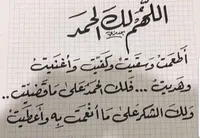 اللهم لك الحمد
أطعمت وسقيت وكفيت وأغنيت
وهديت... فلك الحمد على ما قضيت..
ولك الشكر على ما أنعمت به وأعطيت